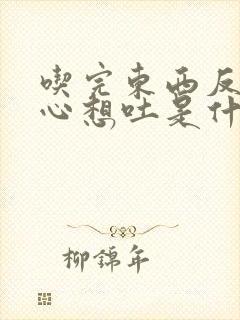 喫完東西反
心想吐是什
柳錦年